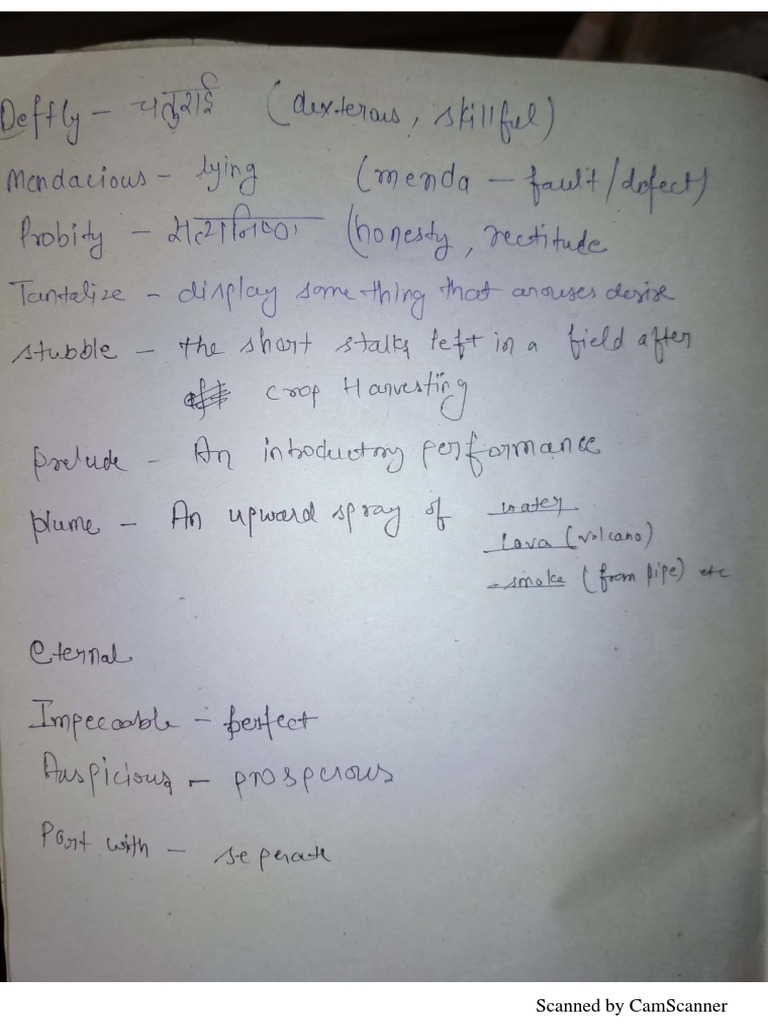 Deftly - चतुराई (dexterous, skillful)
Mendacious - lying (menda - fault/defect)
Probity - सत्यनिष्ठा (honesty, rectitude
Tantalize - display something that arouses desire
stubble - the short stalks left in a field after
crop Harvesting
prelude - An introductory performance
plume - An upward spray of water
lava (volcano)
- smoke (from pipe) etc
Eternal
Impeccable - perfect
Auspicious - prosperous
Part with - seperate
Scanned by CamScanner